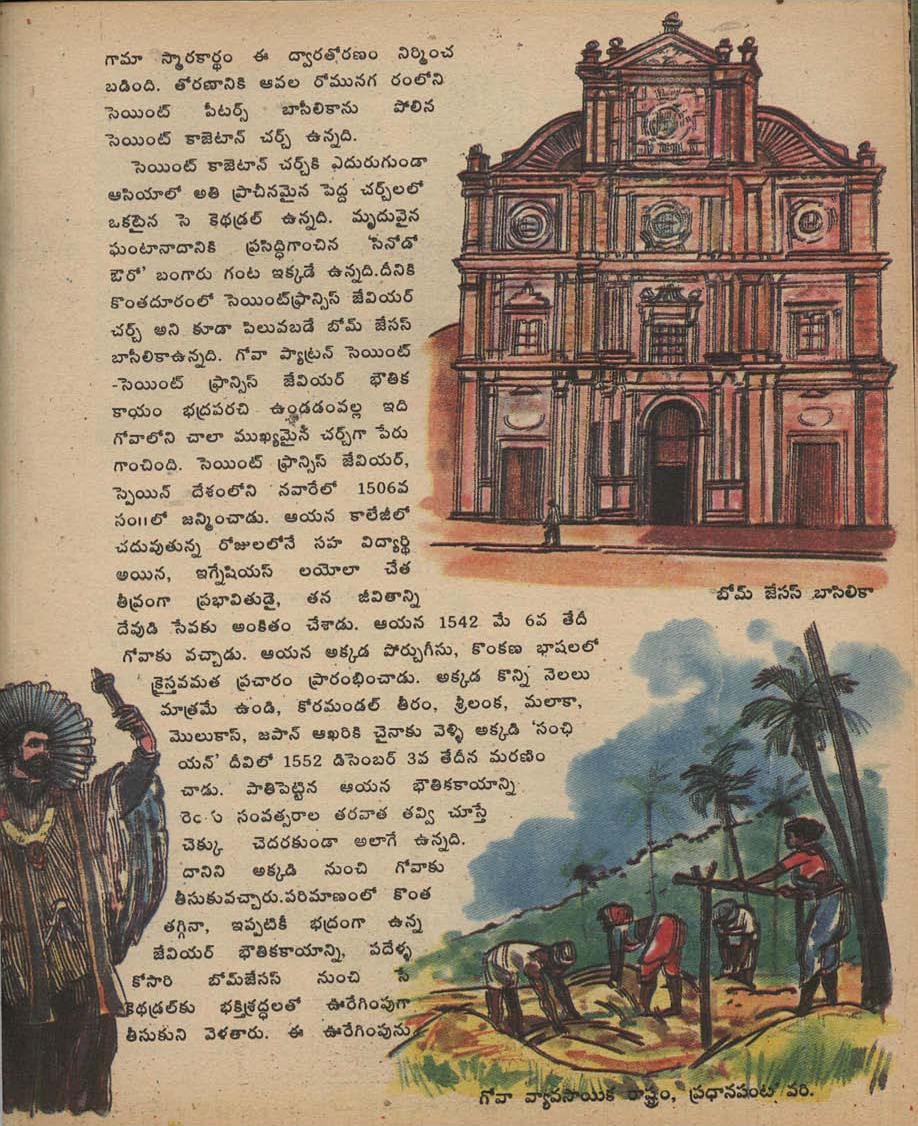 గామా స్మారకార్థం ఈ ద్వారతోరణం నిర్మించ
బడింది. తోరణానికి ఆవల రోమునగ రంలోని
సెయింట్ పీటర్స్ బాసిలికాను పోలిన
సెయింట్ కాజెటాన్ చర్చ్ ఉన్నది.
సెయింట్ కాజెటాన్ చర్చ్‌కి ఎదురుగుండా
ఆసియాలో అతి ప్రాచీనమైన పెద్ద చర్చ్‌లలో
ఒకటైన సె కెథడ్రల్ ఉన్నది. మృదువైన
ఘంటానాదానికి ప్రసిద్ధిగాంచిన 'సినోడో
ఔరో' బంగారు గంట ఇక్కడే ఉన్నది.దీనికి
కొంతదూరంలో సెయింట్‌ఫ్రాన్సిస్ జేవియర్
చర్చ్ అని కూడా పిలువబడే బోమ్ జేసస్
బాసిలికాఉన్నది. గోవా ప్యాట్రన్ సెయింట్
-సెయింట్ ఫ్రాన్సిస్ జేవియర్ భౌతిక
కాయం భద్రపరచి ఉండడంవల్ల ఇది
గోవాలోని చాలా ముఖ్యమైన చర్చ్‌గా పేరు
గాంచింది. సెయింట్ ఫ్రాన్సిస్ జేవియర్,
స్పెయిన్ దేశంలోని నవారేలో 1506వ
సం॥లో జన్మించాడు. ఆయన కాలేజీలో
చదువుతున్న రోజులలోనే సహ విద్యార్థి
అయిన, ఇగ్నేషియస్ లయోలా చేత
తీవ్రంగా ప్రభావితుడై, తన జీవితాన్ని
దేవుడి సేవకు అంకితం చేశాడు. ఆయన 1542 మే 6వ తేదీ
గోవాకు వచ్చాడు. ఆయన అక్కడ పోర్చుగీసు, కొంకణ భాషలలో
క్రైస్తవమత ప్రచారం ప్రారంభించాడు. అక్కడ కొన్ని నెలలు
మాత్రమే ఉండి, కోరమండల్ తీరం, శ్రీలంక, మలాకా,
మొలుకాస్, జపాన్ ఆఖరికి చైనాకు వెళ్ళి అక్కడి 'సంఛి
యన్' దీవిలో 1552 డిసెంబర్ 3వ తేదీన మరణిం
చాడు. పాతిపెట్టిన ఆయన భౌతికకాయాన్ని
సంవత్సరాల తరవాత తవ్వి చూస్తే
చెక్కు చెదరకుండా అలాగే ఉన్నది.
దానిని అక్కడి నుంచి గోవాకు
తీసుకువచ్చారు.పరిమాణంలో కొంత
తగ్గినా, ఇప్పటికీ భద్రంగా ఉన్న
జేవియర్ భౌతికకాయాన్ని, పదేళ్ళ
కోసారి బోమ్‌జేసస్ నుంచి సే
కెథడ్రల్‌కు భక్తిశ్రద్ధలతో ఊరేగింపుగా
తీసుకుని వెళతారు. ఈ ఊరేగింపును
బోమ్ జేసస్ బాసిలికా
గోవా వ్యావసాయిక రాష్ట్రం, ప్రధానపంట వరి.